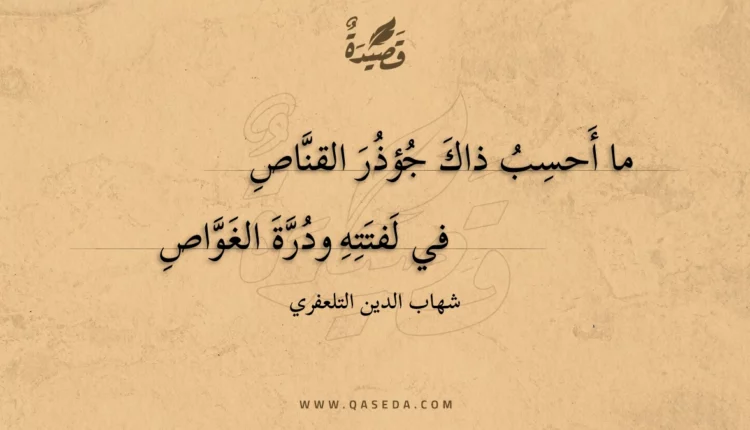 قَصِيْدَةٌ
ما أَحسِبُ ذاكَ جُؤذُرَ القنَّاصِ
في لَفتَتِهِ ودُرَّةَ الغَوَّاصِ
شهاب الدين التلعفري
WWW.QASEDA.COM